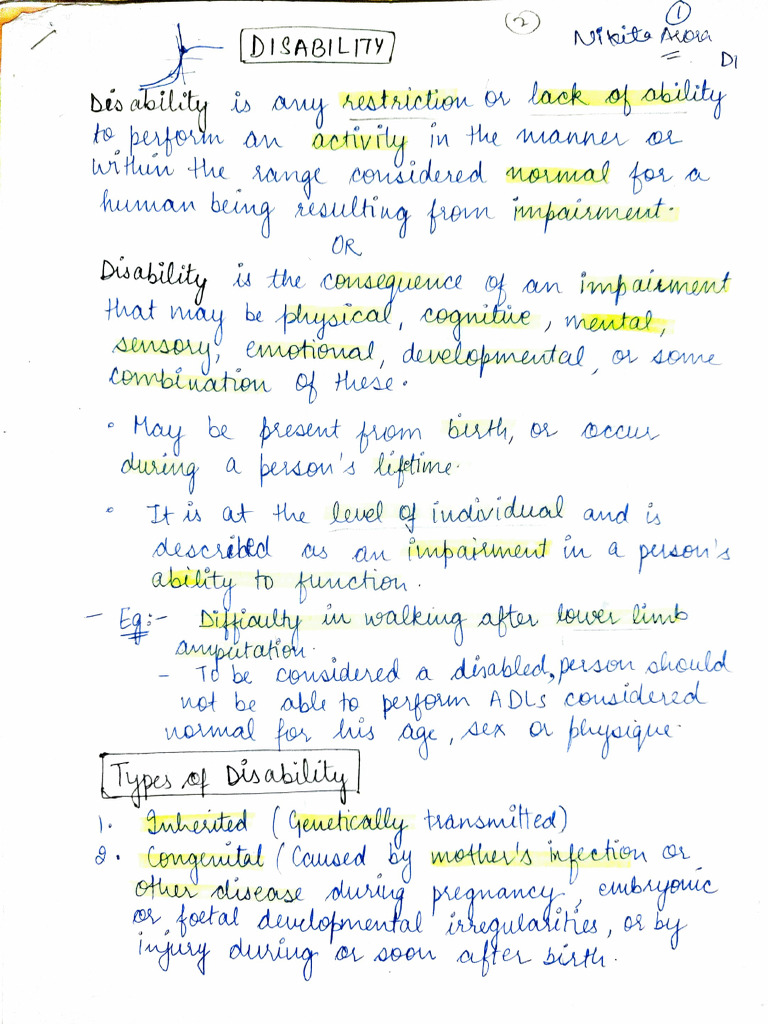 2
1
Nikita Arora
DI
DISABILITY
Disability is any restriction or lack of ability
to perform an activity in the manner or
within the range considered normal for a
human being resulting from impairment.
OR
Disability is the consequence of an impairment
that may be physical, cognitive, mental,
sensory, emotional, developmental, or some
combination of these.
• May be present from birth, or occur
during a person's lifetime.
• It is at the level of individual and is
described as an impairment in a person's
ability to function.
- Eg:- Difficulty in walking after lower limb
amputation.
- To be considered a disabled, person should
not be able to perform ADLs considered
normal for his age, sex or physique.
Types of Disability
1. Inherited (Genetically transmitted)
2. Congenital (Caused by mother's infection or
other disease during pregnancy, embryonic
or foetal developmental irregularities, or by
injury during or soon after birth.